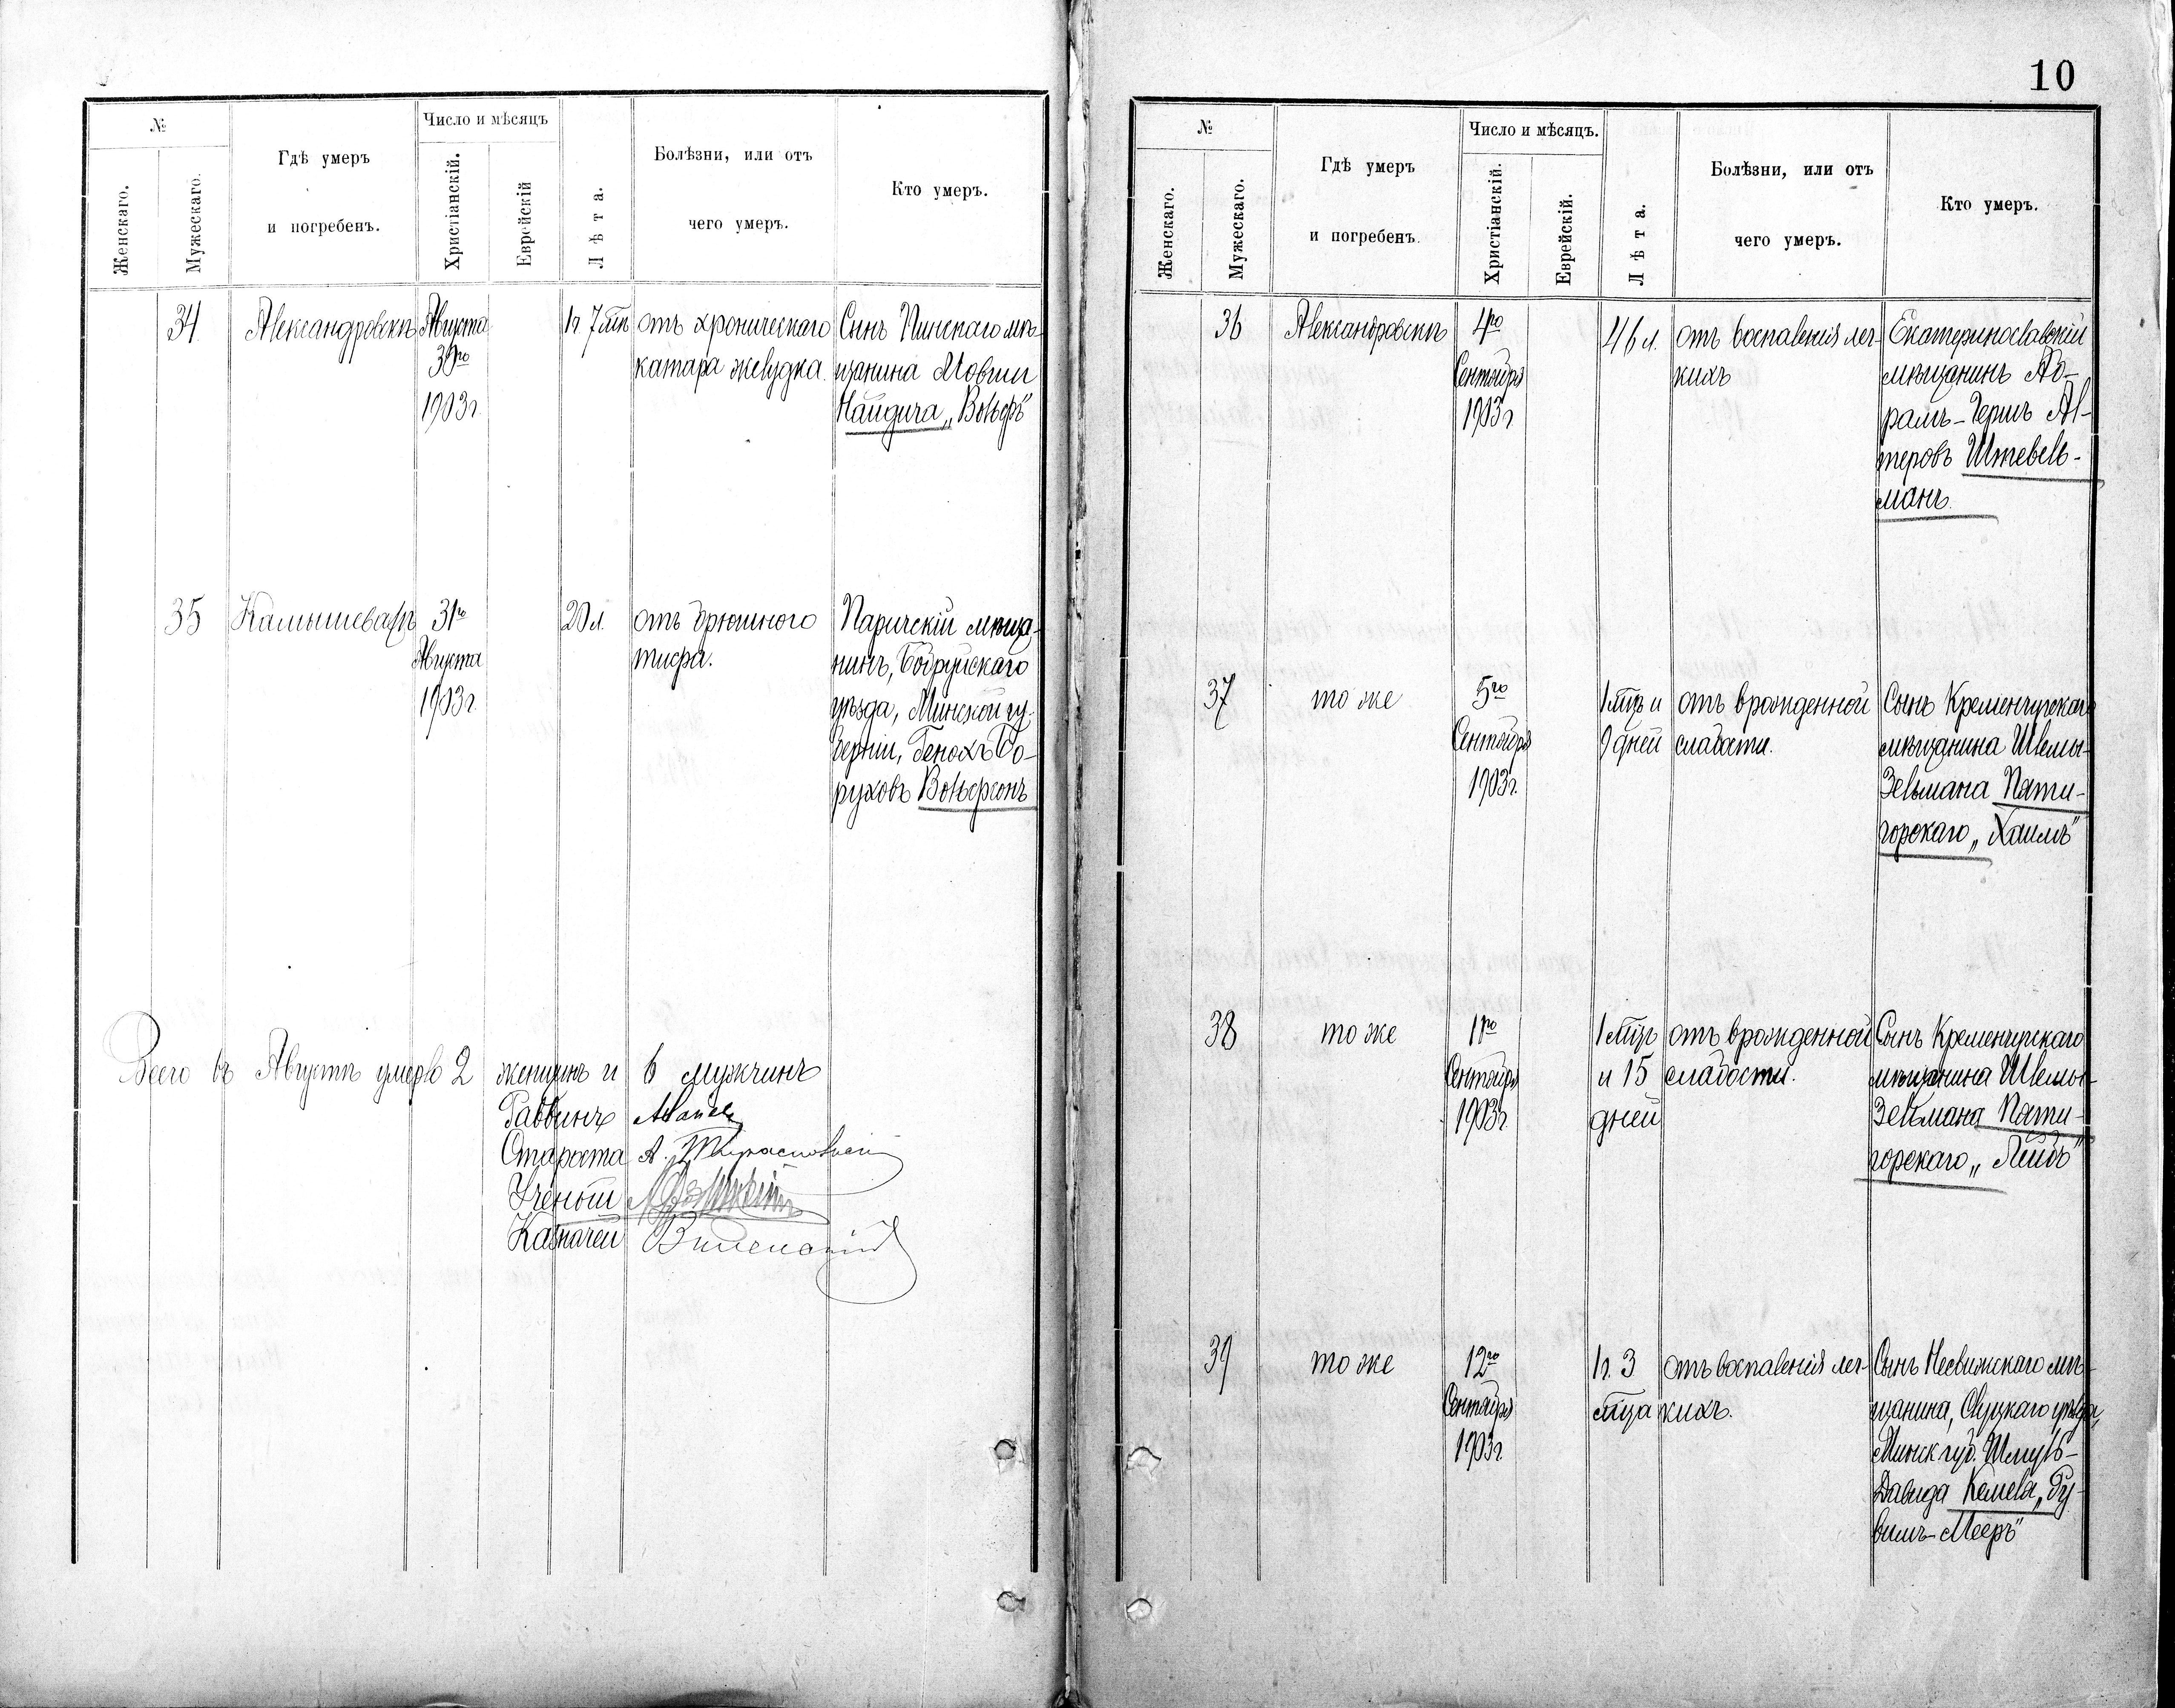 №
Женскаго.
Мужескаго.
Гдѣ умеръ
и погребенъ.
Число и мѣсяцъ
Христіанскій.
Еврейскій
Лѣта.
Болѣзни, или отъ
чего умеръ.
Кто умеръ.
34
Александровскъ
Августа
30го
1903 г.
1 г. 7 мѣс
отъ хроническаго
катара желудка.
Сынъ Пинскаго мѣ-
щанина Мовши
Найдича „Вольфъ"
35
Камышевахъ
31го
Августа
1903 г.
20 л.
отъ брюшного
тифа.
Паричскій мѣща-
нинъ, Бобруйскаго
уѣзда, Минской гу-
берніи, Генохъ Бо-
руховъ Вольфсонъ
Всего въ Августѣ умерло 2 женщинъ и 6 мужчинъ
Раввинъ
Староста А.
Ученый
Казначей Виленскій
10
№
Женскаго.
Мужескаго.
Гдѣ умеръ
и погребенъ.
Число и мѣсяцъ.
Христіанскій.
Еврейскій.
Лѣта.
Болѣзни, или отъ
чего умеръ.
Кто умеръ.
36
Александровскъ
4го
Сентября
1903 г.
46 л.
отъ воспаленія лег-
кихъ
Екатеринославскій
мѣщанинъ Аб-
рамъ-Гершъ Аль-
теровъ Штевель-
манъ.
37
то же
5го
Сентября
1903 г.
1 мѣц и
9 дней
отъ врожденной
слабости.
Сынъ Кременчугскаго
мѣщанина Шлемы-
Зельмана Пяти-
горскаго „Хаимъ"
38
то же
11го
Сентября
1903 г.
1 мѣц
и 15
дней
отъ врожденной
слабости.
Сынъ Кременчугскаго
мѣщанина Шлемы-
Зельмана Пяти-
горскаго „Лейбъ"
39
то же
12го
Сентября
1903 г.
1 г. 3
мѣца
отъ воспаленія лег-
кихъ.
Сынъ Несвижскаго мѣ-
щанина, Слуцкаго уѣзда,
Минск губ. Шмуль-
Давида Кемела, „Ру-
вимъ-Мееръ"